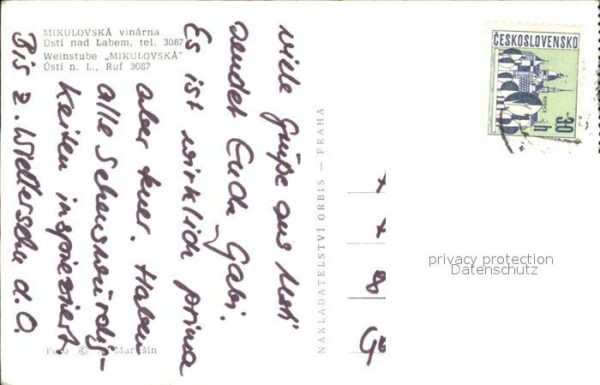 MIKULOVSKÁ vinárna
Ústí nad Labem, tel. 3087
Weinstube „MIKULOVSKÁ"
Ústí n. L., Ruf 3087
viele Grüße aus Usti
sendet Euch Gabi.
Es ist wirklich prima
aber teuer. Haben
alle Sehenswürdig-
keiten inspiziert.
Bis z. Wiedersehn d. O.
NAKLADATELSTVÍ ORBIS — PRAHA
Foto ©
ČESKOSLOVENSKO
30 h
privacy protection
Datenschutz